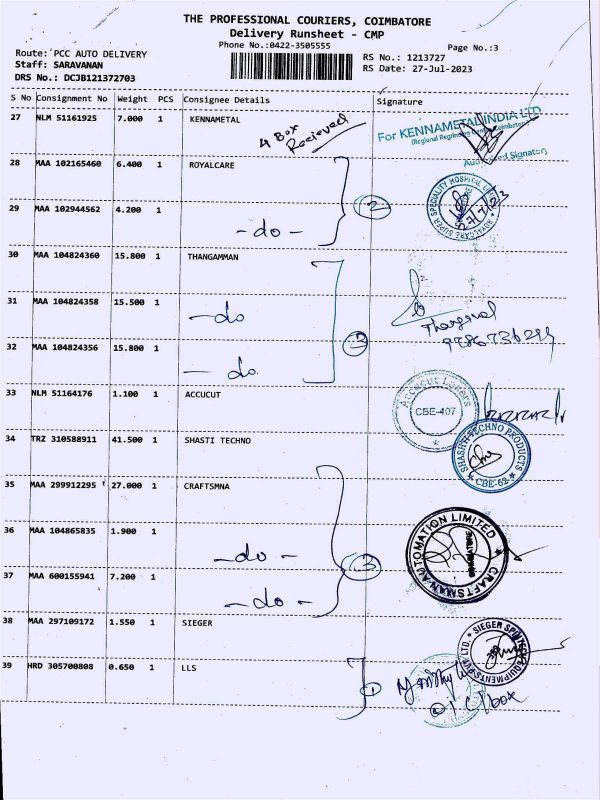 THE PROFESSIONAL COURIERS, COIMBATORE
Delivery Runsheet - CMP
Phone No.:0422-3505555
Page No.:3
Route: PCC AUTO DELIVERY
RS No.: 1213727
Staff: SARAVANAN
RS Date: 27-Jul-2023
DRS No.: DCJB121372703
S No Consignment No Weight PCS Consignee Details Signature
27 NLM 51161925 7.000 1 KENNAMETAL
4 Box Recieved
For KENNAMETAL INDIA LTD
Authorised Signatory
28 MAA 102165460 6.400 1 ROYALCARE
2
ROYALCARE SUPER SPECIALITY HOSPITAL
27/7/23
29 MAA 102944562 4.200 1 - do -
30 MAA 104824360 15.800 1 THANGAMMAN
31 MAA 104824358 15.500 1 - do
3
32 MAA 104824356 15.800 1 - do.
33 NLM 51164176 1.100 1 ACCUCUT
CBE-407
34 TRZ 310588911 41.500 1 SHASTI TECHNO
SHASTI TECHNO PRODUCTS
CBE-62
35 MAA 299912295 27.000 1 CRAFTSMNA
CRAFTSMAN AUTOMATION LIMITED
COIMBATORE
36 MAA 104865835 1.900 1 - do -
3
37 MAA 600155941 7.200 1 - do -
38 MAA 297109172 1.550 1 SIEGER
SIEGER SPINTECH EQUIPMENTS PVT LTD.
39 HRD 305700808 0.650 1 LLS
1
box